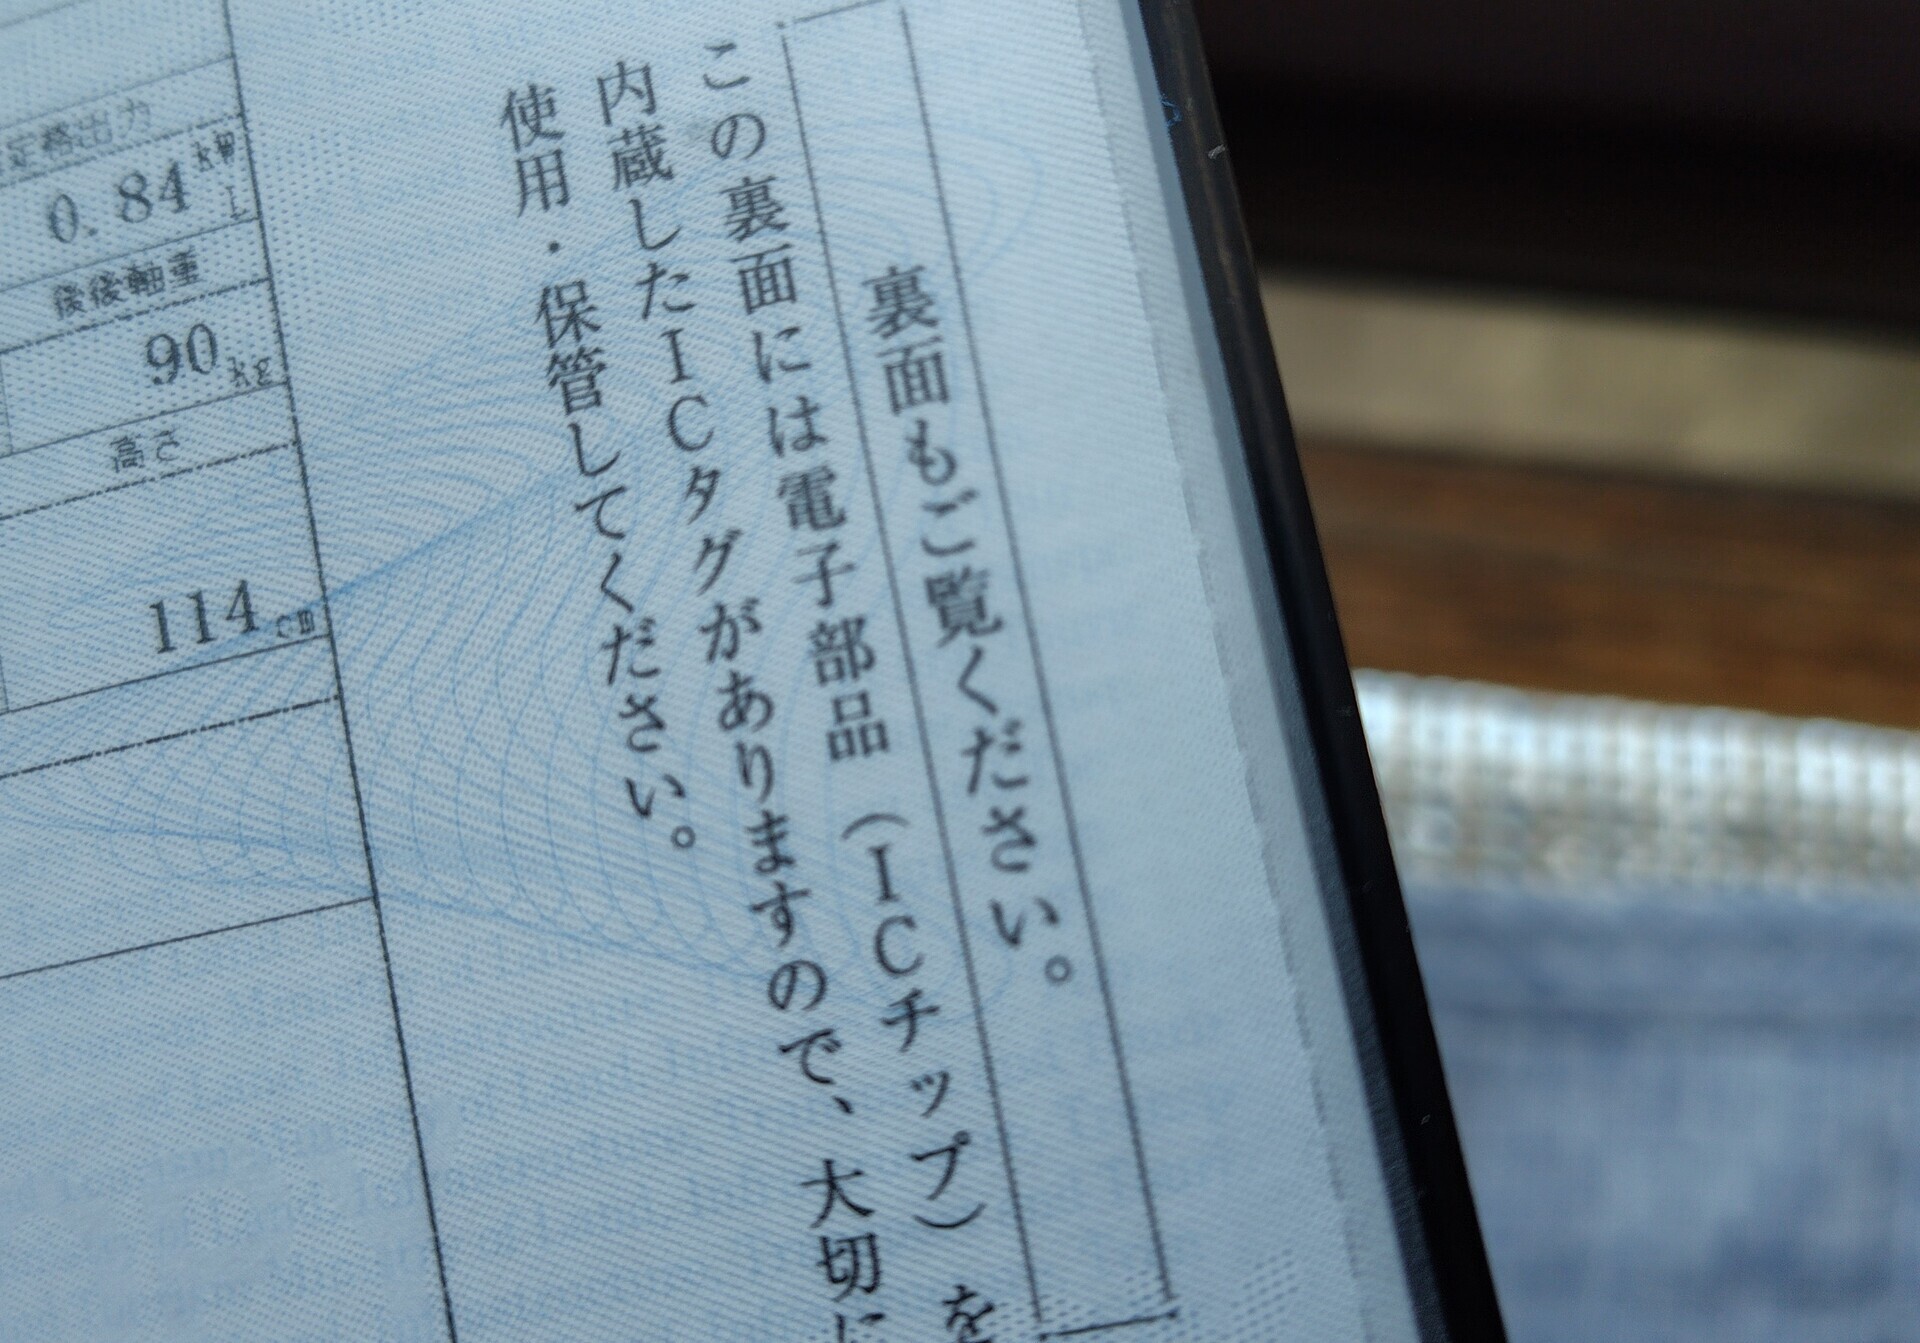 裏面もご覧ください。
この裏面には電子部品（ICチップ）を
内蔵したICタグがありますので、大切に
使用・保管してください。
定格出力
0.84 kW
L
後後軸重
90 kg
高さ
114 cm